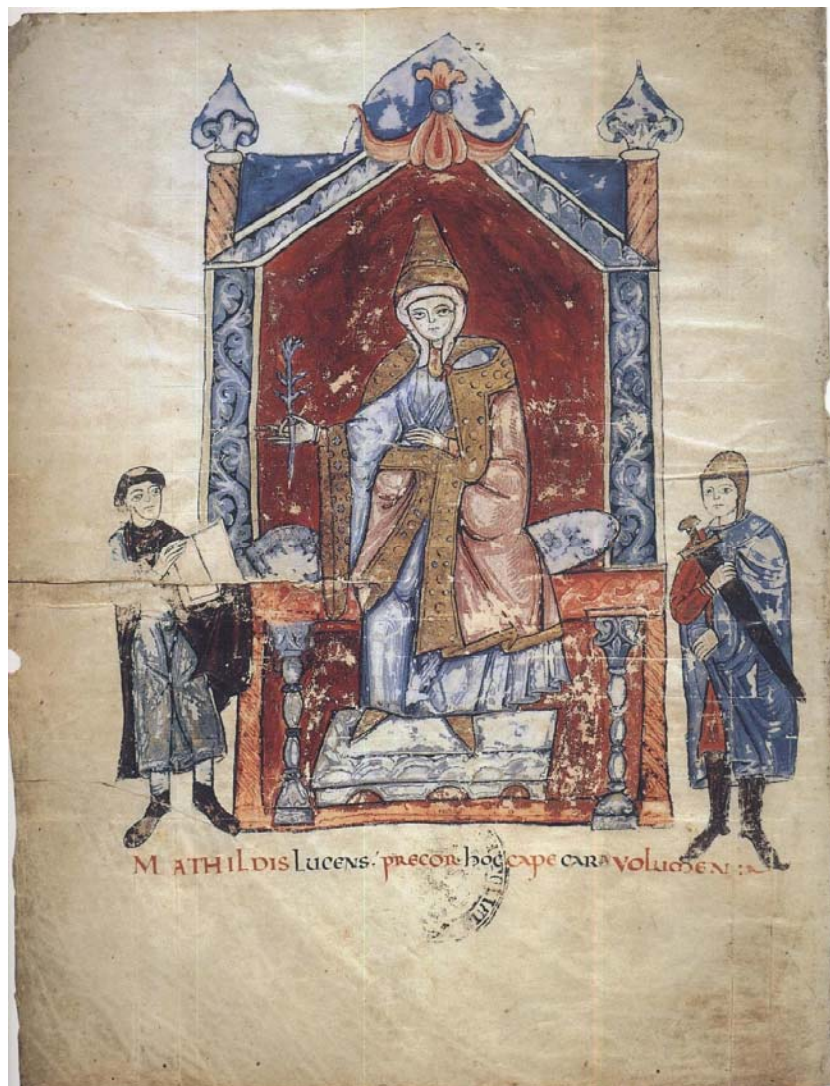 MATHILDIS LUCENS· PRECOR· hOC CAPE CARA VOLUMEN :~